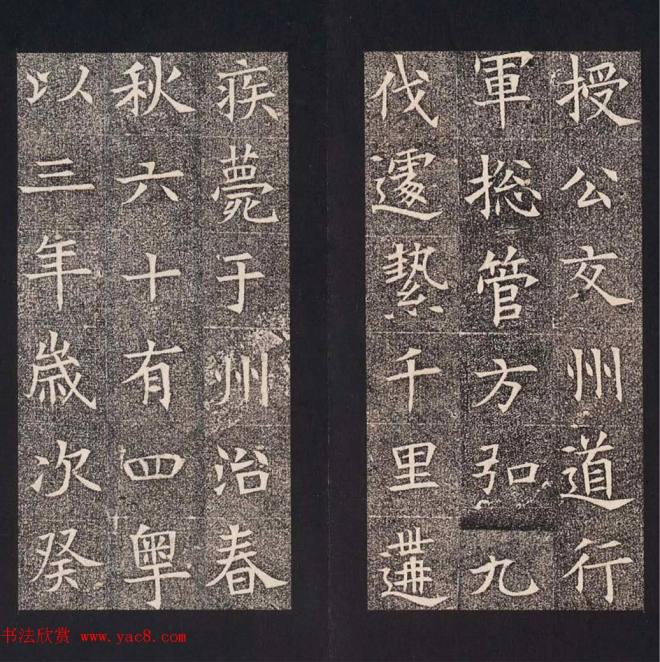 授公交州道行
軍捴管方弘九
伐遽縶千里遘
疾薨于州治春
秋六十有四粤
以三年歲次癸
书法欣赏 www.yac8.com